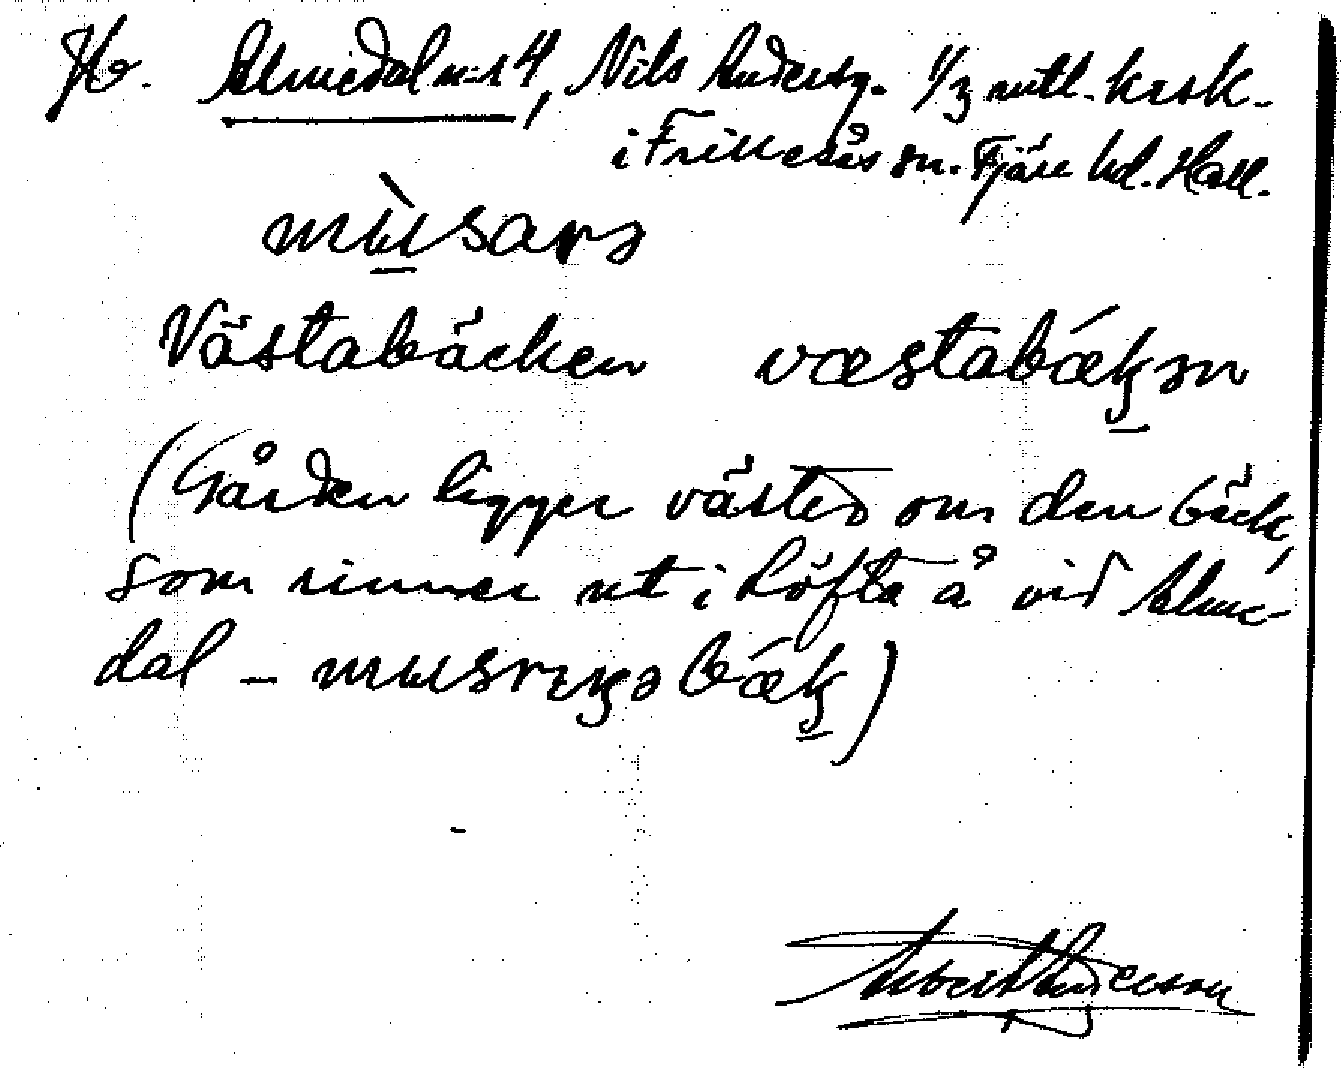 Hr. Almedal n:r 4, Nils Anders g. 1/3 mtl. krsk.
i Frillesås sn. Fjäre hd. Hall.
mùsarə
Västabäcken væstabǽkən
(Gården ligger väster om den bäck,
som rinner ut i Löfta å vid Alme-
dal – bǽk)
Albert Andersson